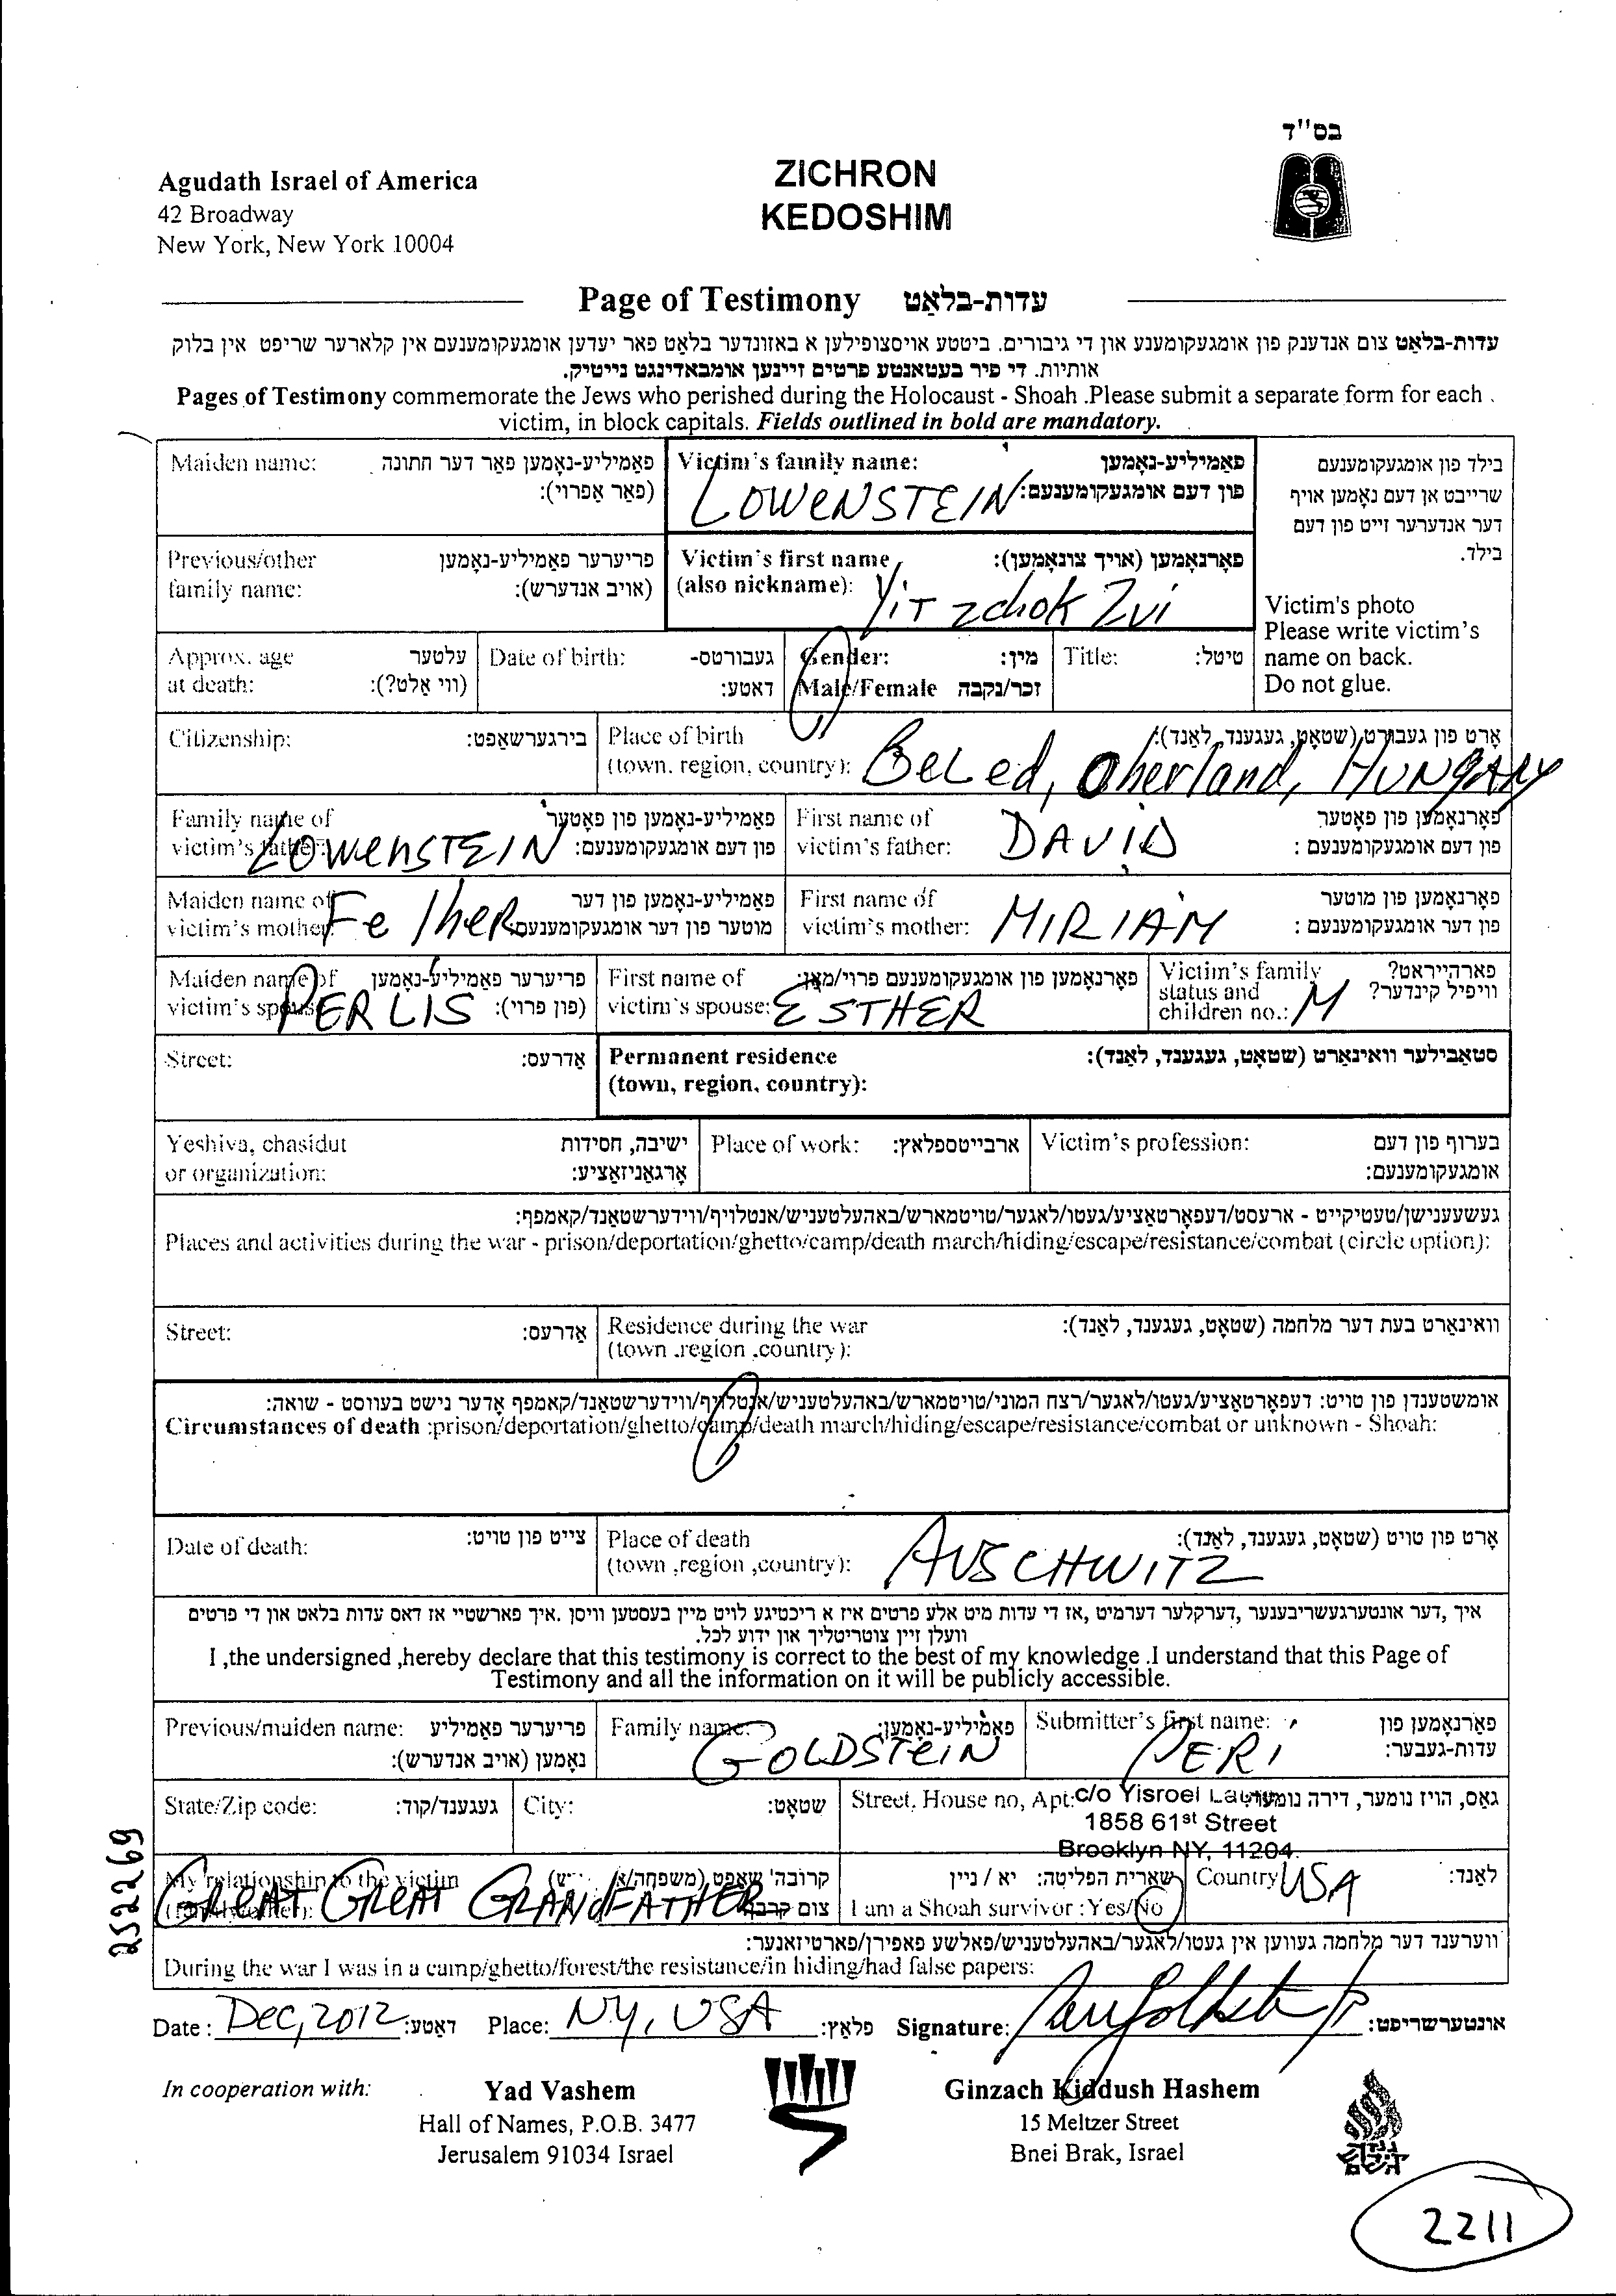 בס"ד
Agudath Israel of America
42 Broadway
New York, New York 10004
ZICHRON
KEDOSHIM
Page of Testimony עדות-בלאַט
עדות-בלאַט צום אנדענק פון אומגעקומענע און די גיבורים. ביטטע אויסצופילען א באזונדער בלאַט פאר יעדען אומגעקומענעם אין קלארער שריפט אין בלוק
אותיות. די פיר בעטאנטע פרטים זיינען אומבאדינגט נייטיק.
Pages of Testimony commemorate the Jews who perished during the Holocaust - Shoah .Please submit a separate form for each
victim, in block capitals. Fields outlined in bold are mandatory.
Maiden name: פאַמיליע-נאָמען פאַר דער חתונה
(פאַר אַפרוי):
Victim's family name: פאַמיליע-נאָמען
פון דעם אומגעקומענעם:
LOWENSTEIN
בילד פון אומגעקומענעם
שרייבט אן דעם נאָמען אויף
דער אנדערער זייט פון דעם
בילד.
Previous/other פריערער פאַמיליע-נאָמען
family name: (אויב אנדערש):
Victim's first name פאָרנאָמען (אויך צונאָמען):
(also nickname):
Yitzchok Zvi
Victim's photo
Please write victim's
name on back.
Do not glue.
Approx. age עלטער
at death: (ווי אַלט?):
Date of birth: געבורטס-
דאטע:
Gender: מין:
Male/Female זכר/נקבה
Title: טיטל:
Citizenship: בירגערשאַפט:
Place of birth אָרט פון געבורט (שטאָט, געגענד, לאַנד):
(town, region, country):
Beled, Oberland, HUNGARY
Family name of פאַמיליע-נאָמען פון פאָטער
victim's father: פון דעם אומגעקומענעם:
LOWENSTEIN
First name of פאָרנאָמען פון פאָטער
victim's father: פון דעם אומגעקומענעם :
DAVID
Maiden name of פאַמיליע-נאָמען פון דער
victim's mother: מוטער פון דער אומגעקומענעם
First name of פאָרנאָמען פון מוטער
victim's mother: פון דער אומגעקומענעם :
MIRIAM
Maiden name of פריערער פאַמיליע-נאָמען
victim's spouse: (פון פרוי):
PERLIS
First name of פאָרנאָמען פון אומגעקומענעם פרוי/מאַן:
victim's spouse:
ESTHER
Victim's family פארהייראט?
status and וויפיל קינדער?
children no.:
M
Street: אַדרעס:
Permanent residence סטאַבילער וואוינאָרט (שטאָט, געגענד, לאַנד):
(town, region, country):
Yeshiva, chasidut ישיבה, חסידות
or organization: אָרגאַניזאַציע:
Place of work: ארבייטספלאץ:
Victim's profession: בערוף פון דעם
אומגעקומענעם:
געשעענישן/טעטיקייט - ארעסט/דעפאָרטאַציע/געטו/לאגער/טויטמארש/באהעלטעניש/אנטלויף/ווידערשטאַנד/קאמפף:
Places and activities during the war - prison/deportation/ghetto/camp/death march/hiding/escape/resistance/combat (circle option):
Street: אַדרעס:
Residence during the war וואוינאָרט בעת דער מלחמה (שטאָט, געגענד, לאַנד):
(town .region .country):
אומשטענדן פון טויט: דעפאָרטאַציע/געטו/לאגער/רצח המוני/טויטמארש/באהעלטעניש/אַנטלויף/ווידערשטאַנד/קאמפף אָדער נישט בעווסט - שואה:
Circumstances of death :prison/deportation/ghetto/camp/death march/hiding/escape/resistance/combat or unknown - Shoah:
Date of death: צייט פון טויט:
Place of death אָרט פון טויט (שטאָט, געגענד, לאַנד):
(town ,region ,country):
AUSCHWITZ
איך ,דער אונטערגעשריבענער ,דערקלער דערמיט ,אז די עדות מיט אלע פרטים איז א ריכטיגע לויט מיין בעסטען וויסן .איך פארשטיי אז דאס עדות בלאט און די פרטים
וועלן זיין צוטריטליך און ידוע לכל.
I ,the undersigned ,hereby declare that this testimony is correct to the best of my knowledge .I understand that this Page of
Testimony and all the information on it will be publicly accessible.
Previous/maiden name: פריערער פאַמיליע
נאָמען (אויב אנדערש):
Family name: פאַמיליע-נאָמען:
GOLDSTEIN
Submitter's first name: פאָרנאָמען פון
עדות-געבער:
PERI
State/Zip code: געגענד/קוד:
City: שטאָט:
Street, House no, Apt: גאַס, הויז נומער, דירה נומער:
c/o Yisroel
1858 61st Street
Brooklyn NY, 11204
My relationship to the victim קרובה'שאַפט (משפחה/אַ
צום
GREAT GREAT GRANDFATHER
שארית הפליטה: יא / ניין
I am a Shoah survivor : Yes/No
Country לאַנד:
USA
ווערענד דער מלחמה געווען אין געטו/לאגער/באהעלטעניש/פאלשע פאפירן/פארטיזאנער:
During the war I was in a camp/ghetto/forest/the resistance/in hiding/had false papers:
Date : Dec, 2012 דאטע: Place: NY, USA פלאַץ: Signature: אונטערשריפט:
In cooperation with:
Yad Vashem
Hall of Names, P.O.B. 3477
Jerusalem 91034 Israel
Ginzach Kiddush Hashem
15 Meltzer Street
Bnei Brak, Israel
252269
2211